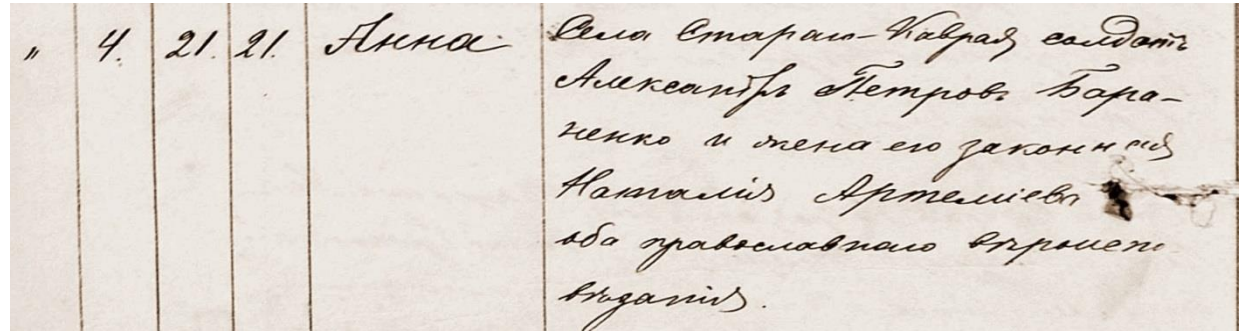 " 4. 21. 21. Анна Села Стараго-Коврая солдатъ
Александръ Петровъ Бара-
ненко и жена его законная
Наталія Артеміева
оба православнаго вѣроиспо
вѣданія.